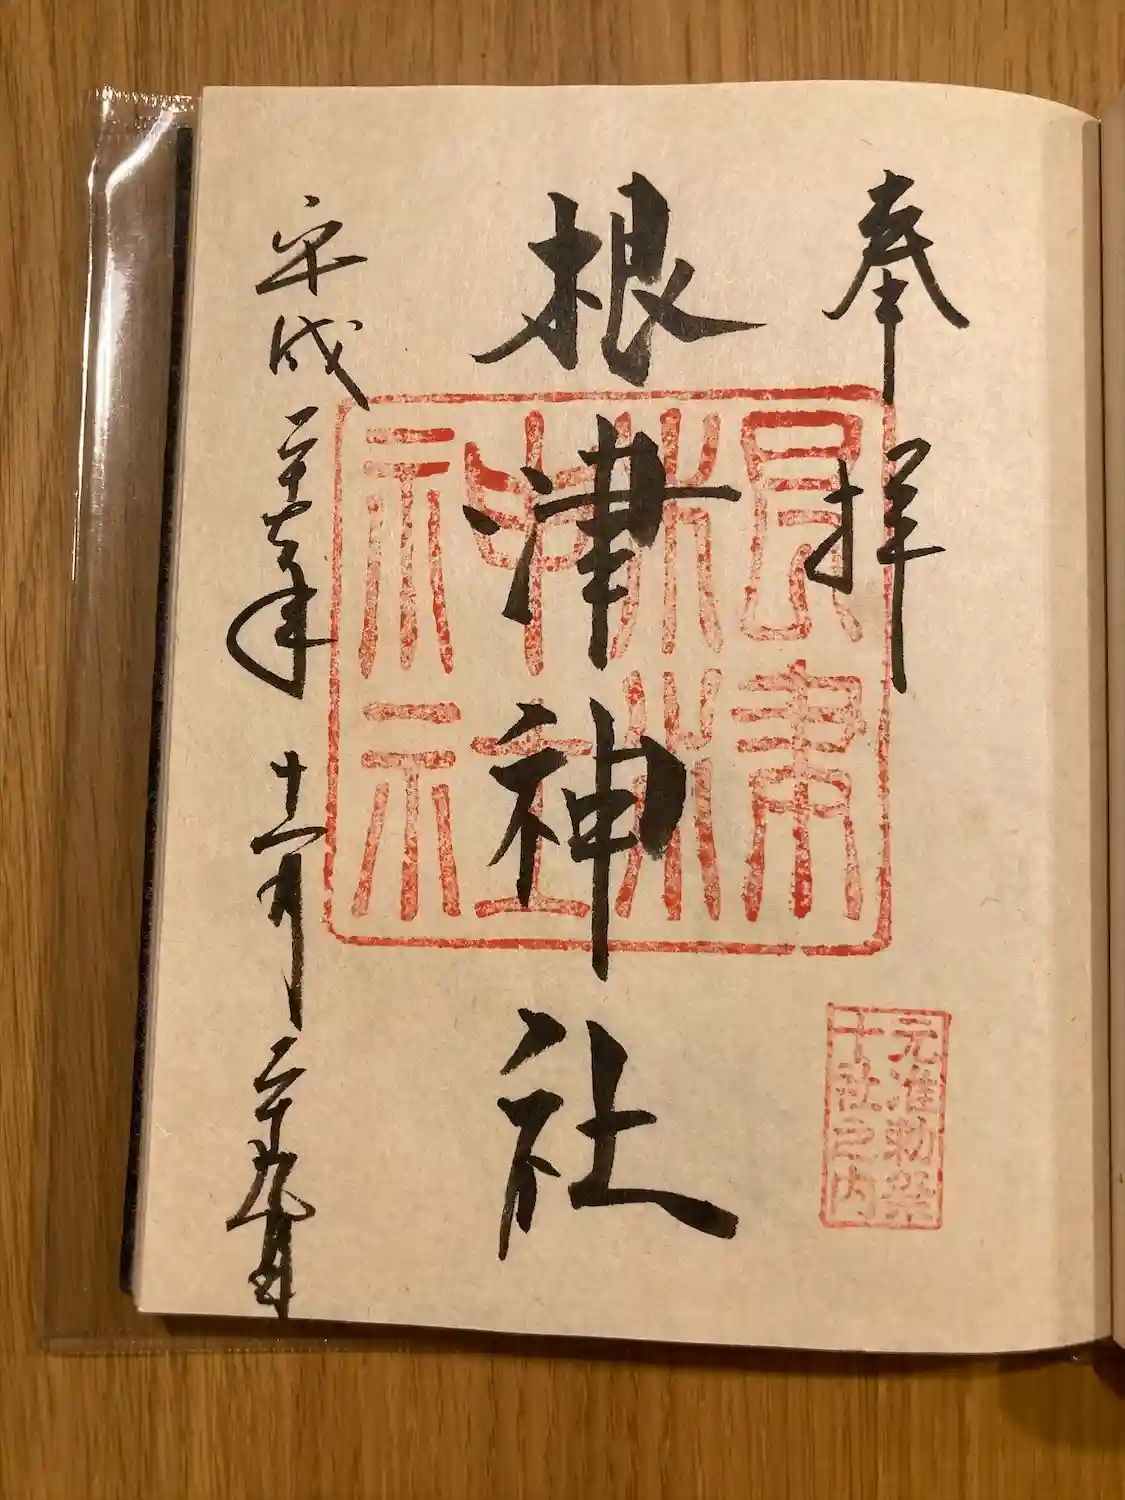 奉拝
元准勅祭
十社之内
根津神社
根津
神社
平成二十七年十一月二十九日